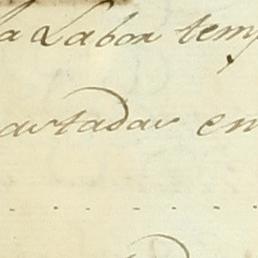 la Labor temp
artadas en